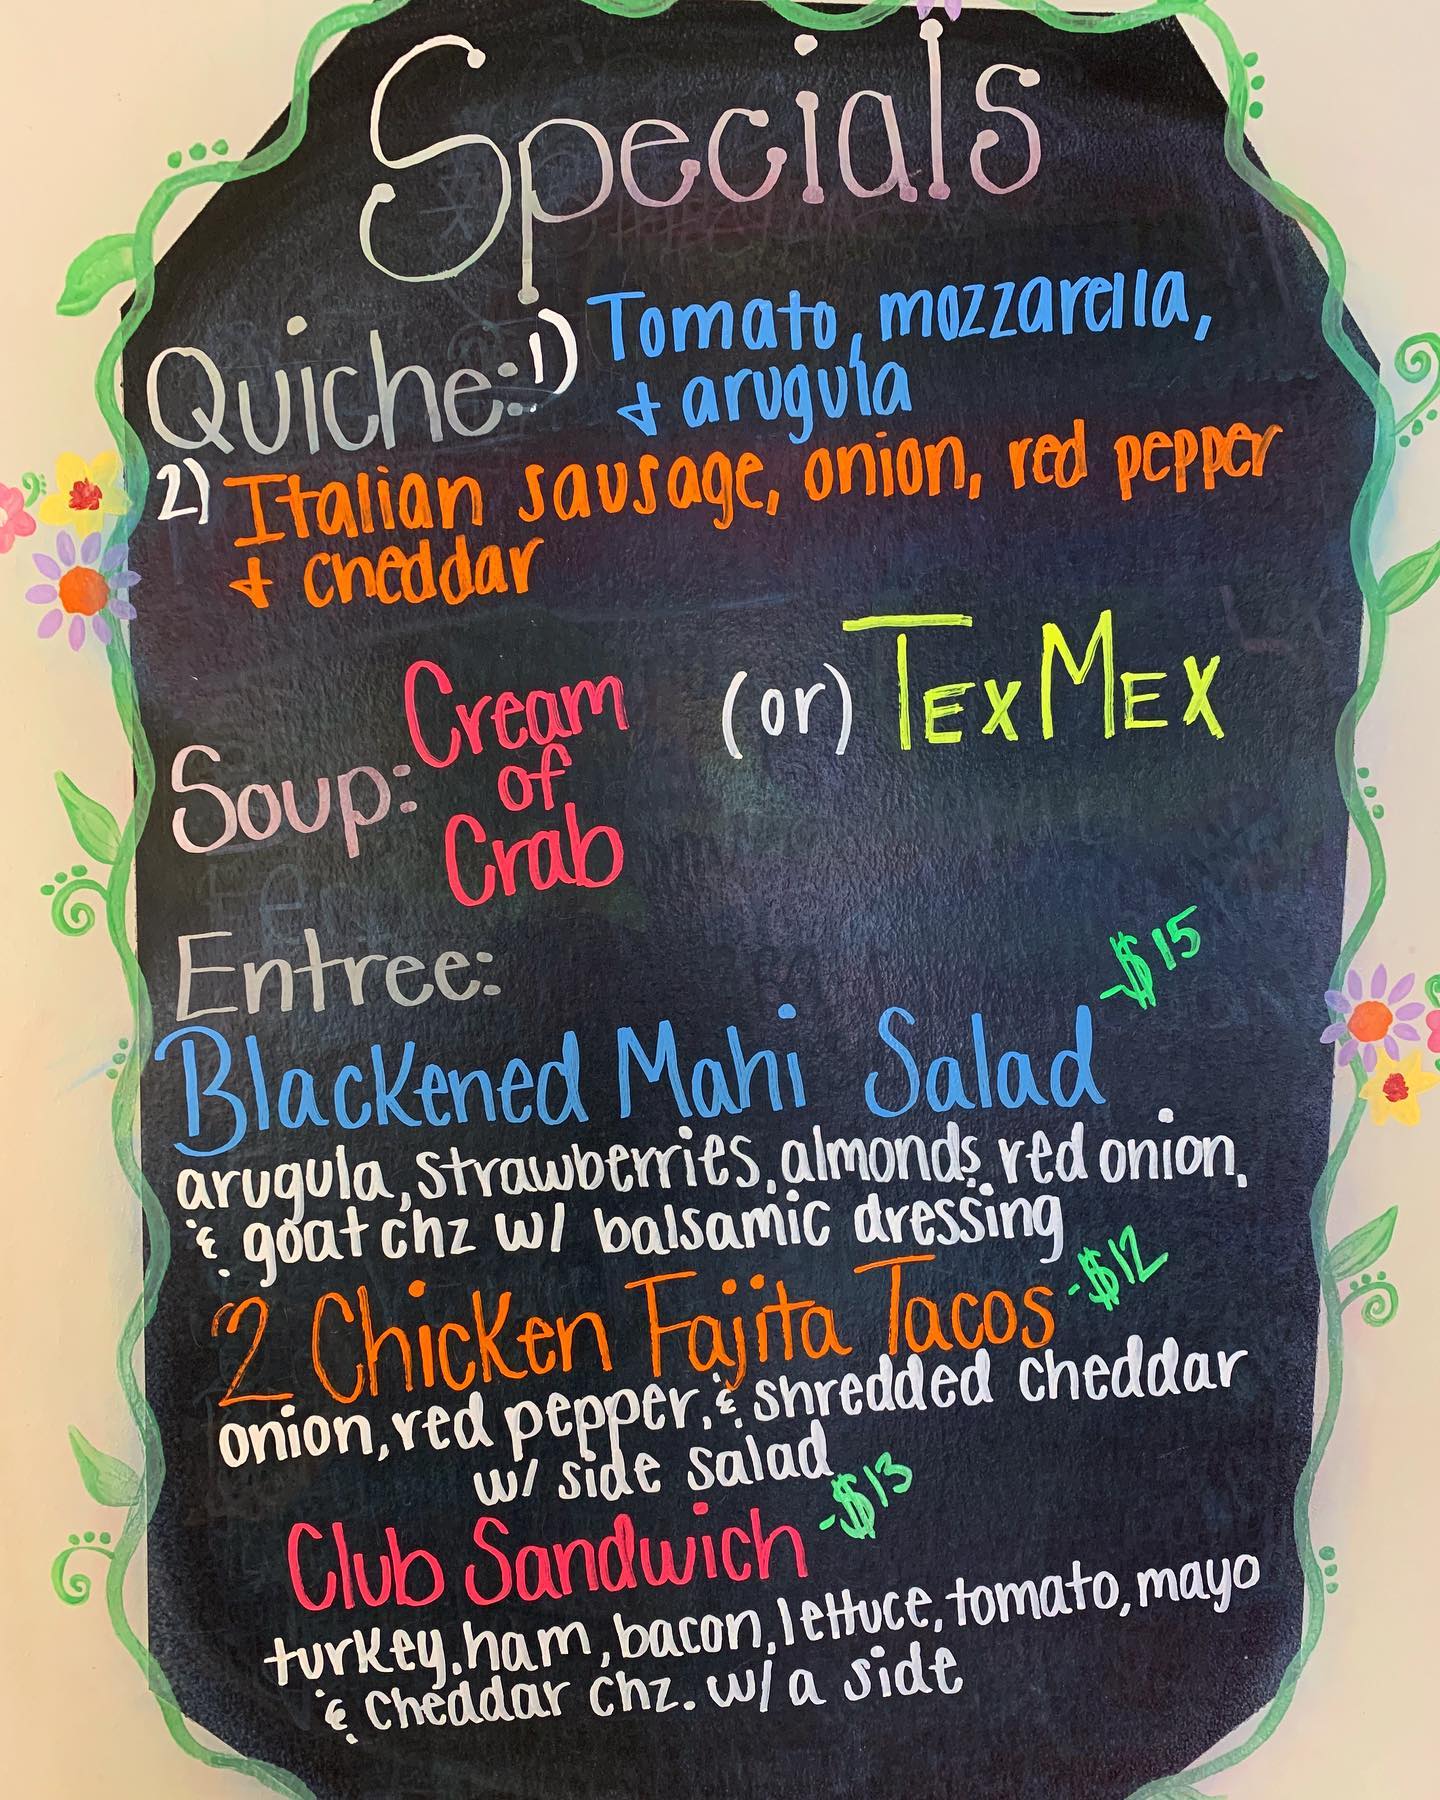 Specials
Quiche: 1) Tomato, mozzarella,
& arugula
2) Italian sausage, onion, red pepper
& cheddar
Soup: Cream
of
Crab
(or) TEX MEX
Entree:
Blackened Mahi Salad -$15
arugula, strawberries, almonds, red onion,
& goat chz w/ balsamic dressing
2 Chicken Fajita Tacos -$12
onion, red pepper, & shredded cheddar
w/ side salad
Club Sandwich -$13
turkey, ham, bacon, lettuce, tomato, mayo
& cheddar chz. w/ a side